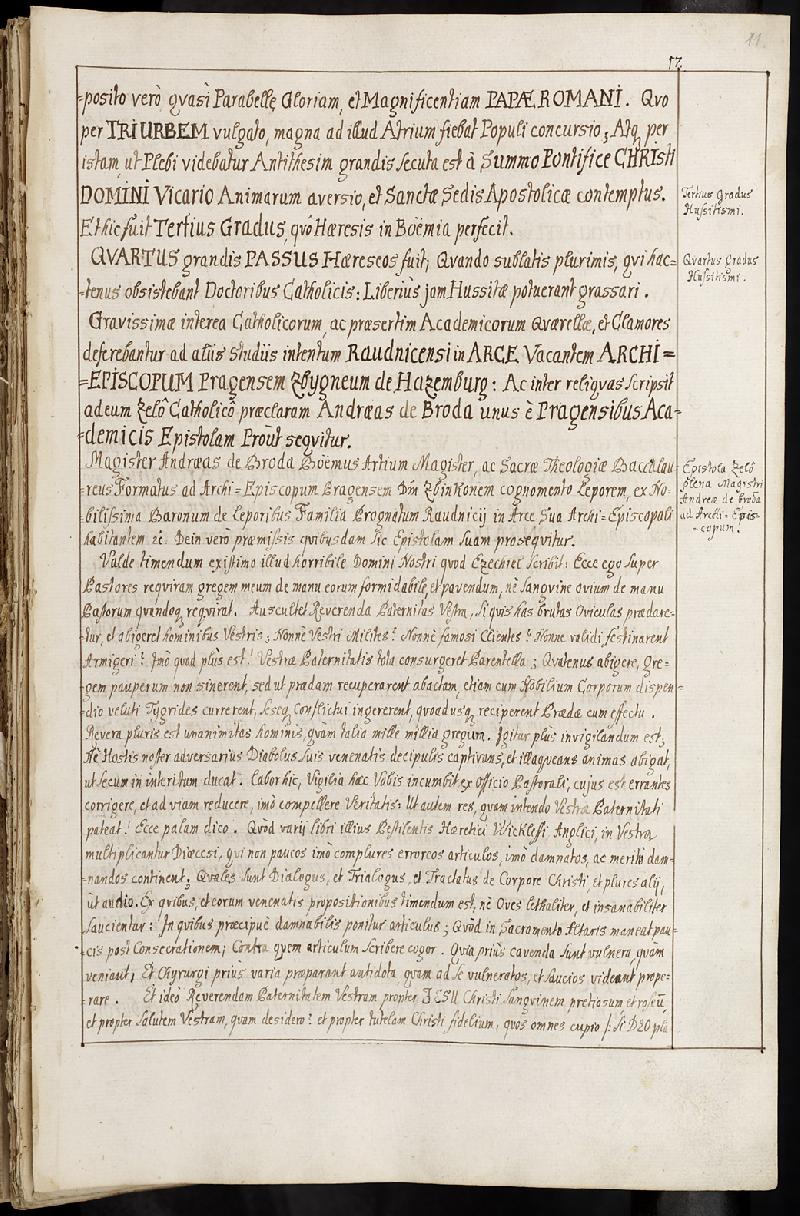 11.
17
=posito verò quasi Parabellę Gloriam, et Magnificentiam PAPÆ ROMANI. Quo
per TRIURBEM vulgato, magna ad illud Atrium fiebat Populi concursio; Atq, per
istam, ut Plebi videbatur Antithesim grandis secuta est à Summo Pontifice CHRIsti
DOMINI Vicario Animarum aversio, et Sanctæ Sedis Apostolicæ contemptus.
Et hic fuit Tertius Gradus, quô Hæresis in Boëmia perfecit.
Tertius Gradus
Hussitismi.
QVARTUS grandis PASSUS Hæreseos fuit, Quando sublatis plurimis, qvi hac=
=tenus obsistebant Doctoribus Catholicis: Liberius jam Hussitæ potuerant grassari.
Quartus Gradus
Hussitismi.
Gravissimæ interea Catholicorum, ac præsertim Academicorum Quærellæ, et Clamores
deferebantur ad aliis studiis intentum Raudnicensi in ARCE Vacantem ARCHI=
=EPISCOPUM Pragensem Zbygneum de Hazemburg: Ac inter reliqvas scripsit
ad eum Zelô Catholicô præclaram Andræas de Broda unus è Pragensibus Aca=
=demicis Epistolam Prout seqvitur.
Magister Andræas de Broda Boëmus Artium Magister, ac Sacræ Theologiæ Baccalau
reus Formatus ad Archi=Episcopum Pragensem Dm̃ Zbinkonem cognomento Leporem, ex No=
bilissima Baronum de Leporibus Familia Prognatum Raudnicij in Arce Sua Archi=Episcopali
habitantem &c. Dein verò præmissis qvibusdam sic Epistolam suam proseqvitur.
Epistola Zelô
plena Magistri
Andreæ de Broda
ad Archi=Epis=
=copum.
Valde timendum existimo illud horribile Domini Nostri quod Ezechiel scribit: Ecce ego super
Pastores reqviram gregem meum de manu eorum formidabile, et pavendum, nè Sangvine ovium de manu
Pastorum qvendoq reqvirat. Auscultet Reverenda Paternitas Vestra, Si quis has brutas Oviculas prædare=
tur, et abigeret hominibus Vestris; Nonnè Vestri Milites? Nonnè famosi Clientes? Nonne validi festinarent
Armigeri? Imò quod plus est! Vestræ Paternitatis tota consurgeret Parentella; Qvatenus abigere, gre=
gem pauperum non sinerent, sed ut prædam recuperarent abactam, etiam cum Nobilium Corporum dispen=
dio veluti Tygrides currerent, seseq Conflictui ingererent, quoadusq reciperent Prædæ cum effectu.
Revera pluris est unanimitas hominis, qvàm talia mille millia gregum. Igitur plus invigilandum est,
Nè Hostis noster adversarius Diabolus suis venenatis decipulis captivans, et illaqveans animas abigat,
ut secum in interitum ducat. Labor hic, Vigilia hæc Vobis incumbit ex Officio Pastorali, cujus est errantes
corrigere, et ad viam reducere, imò compellere Veritatis: Ut autem res, qvam intendo Vestræ Paternitati
pateat! Ecce palam dico. Qvòd varij libri illius Pestilentis Hæretici Wicklefi Anglici, in Vestra
multiplicantur Diæcesi, qvi non paucos imò complures erroreos articulos, imò damnatos, ac meritò dam=
=nandos continent; Qvales sunt Dialogus, et Trialogus, et Tractatus de Corpore Christi et plures alij,
ut audio. Ex qvibus, et eorum venenatis propositionibus timendum est, nè Oves lethaliter, et insanabiliter
saucientur: In qvibus præcipuè damnabilis ponitur articulus; Qvòd in Sacramento Altaris maneat pa=
cis post Consecrationem; Contra qvem articulum scribere cogor. Qvia priùs cavenda sunt vulnera, qvàm
veniant; Et Chyrurgi priùs varia præparant antidota, qvam ad se vulneratos, et saucios videant prope=
rare. Et ideò Reverendam Paternitatem Vestram propter JESU Christi sangvinem pretiosum et roseũ,
et propter Salutem Vestram, qvam desidero: et propter tutelam Christi fidelium, qvos omnes cupio /: si DEO pla